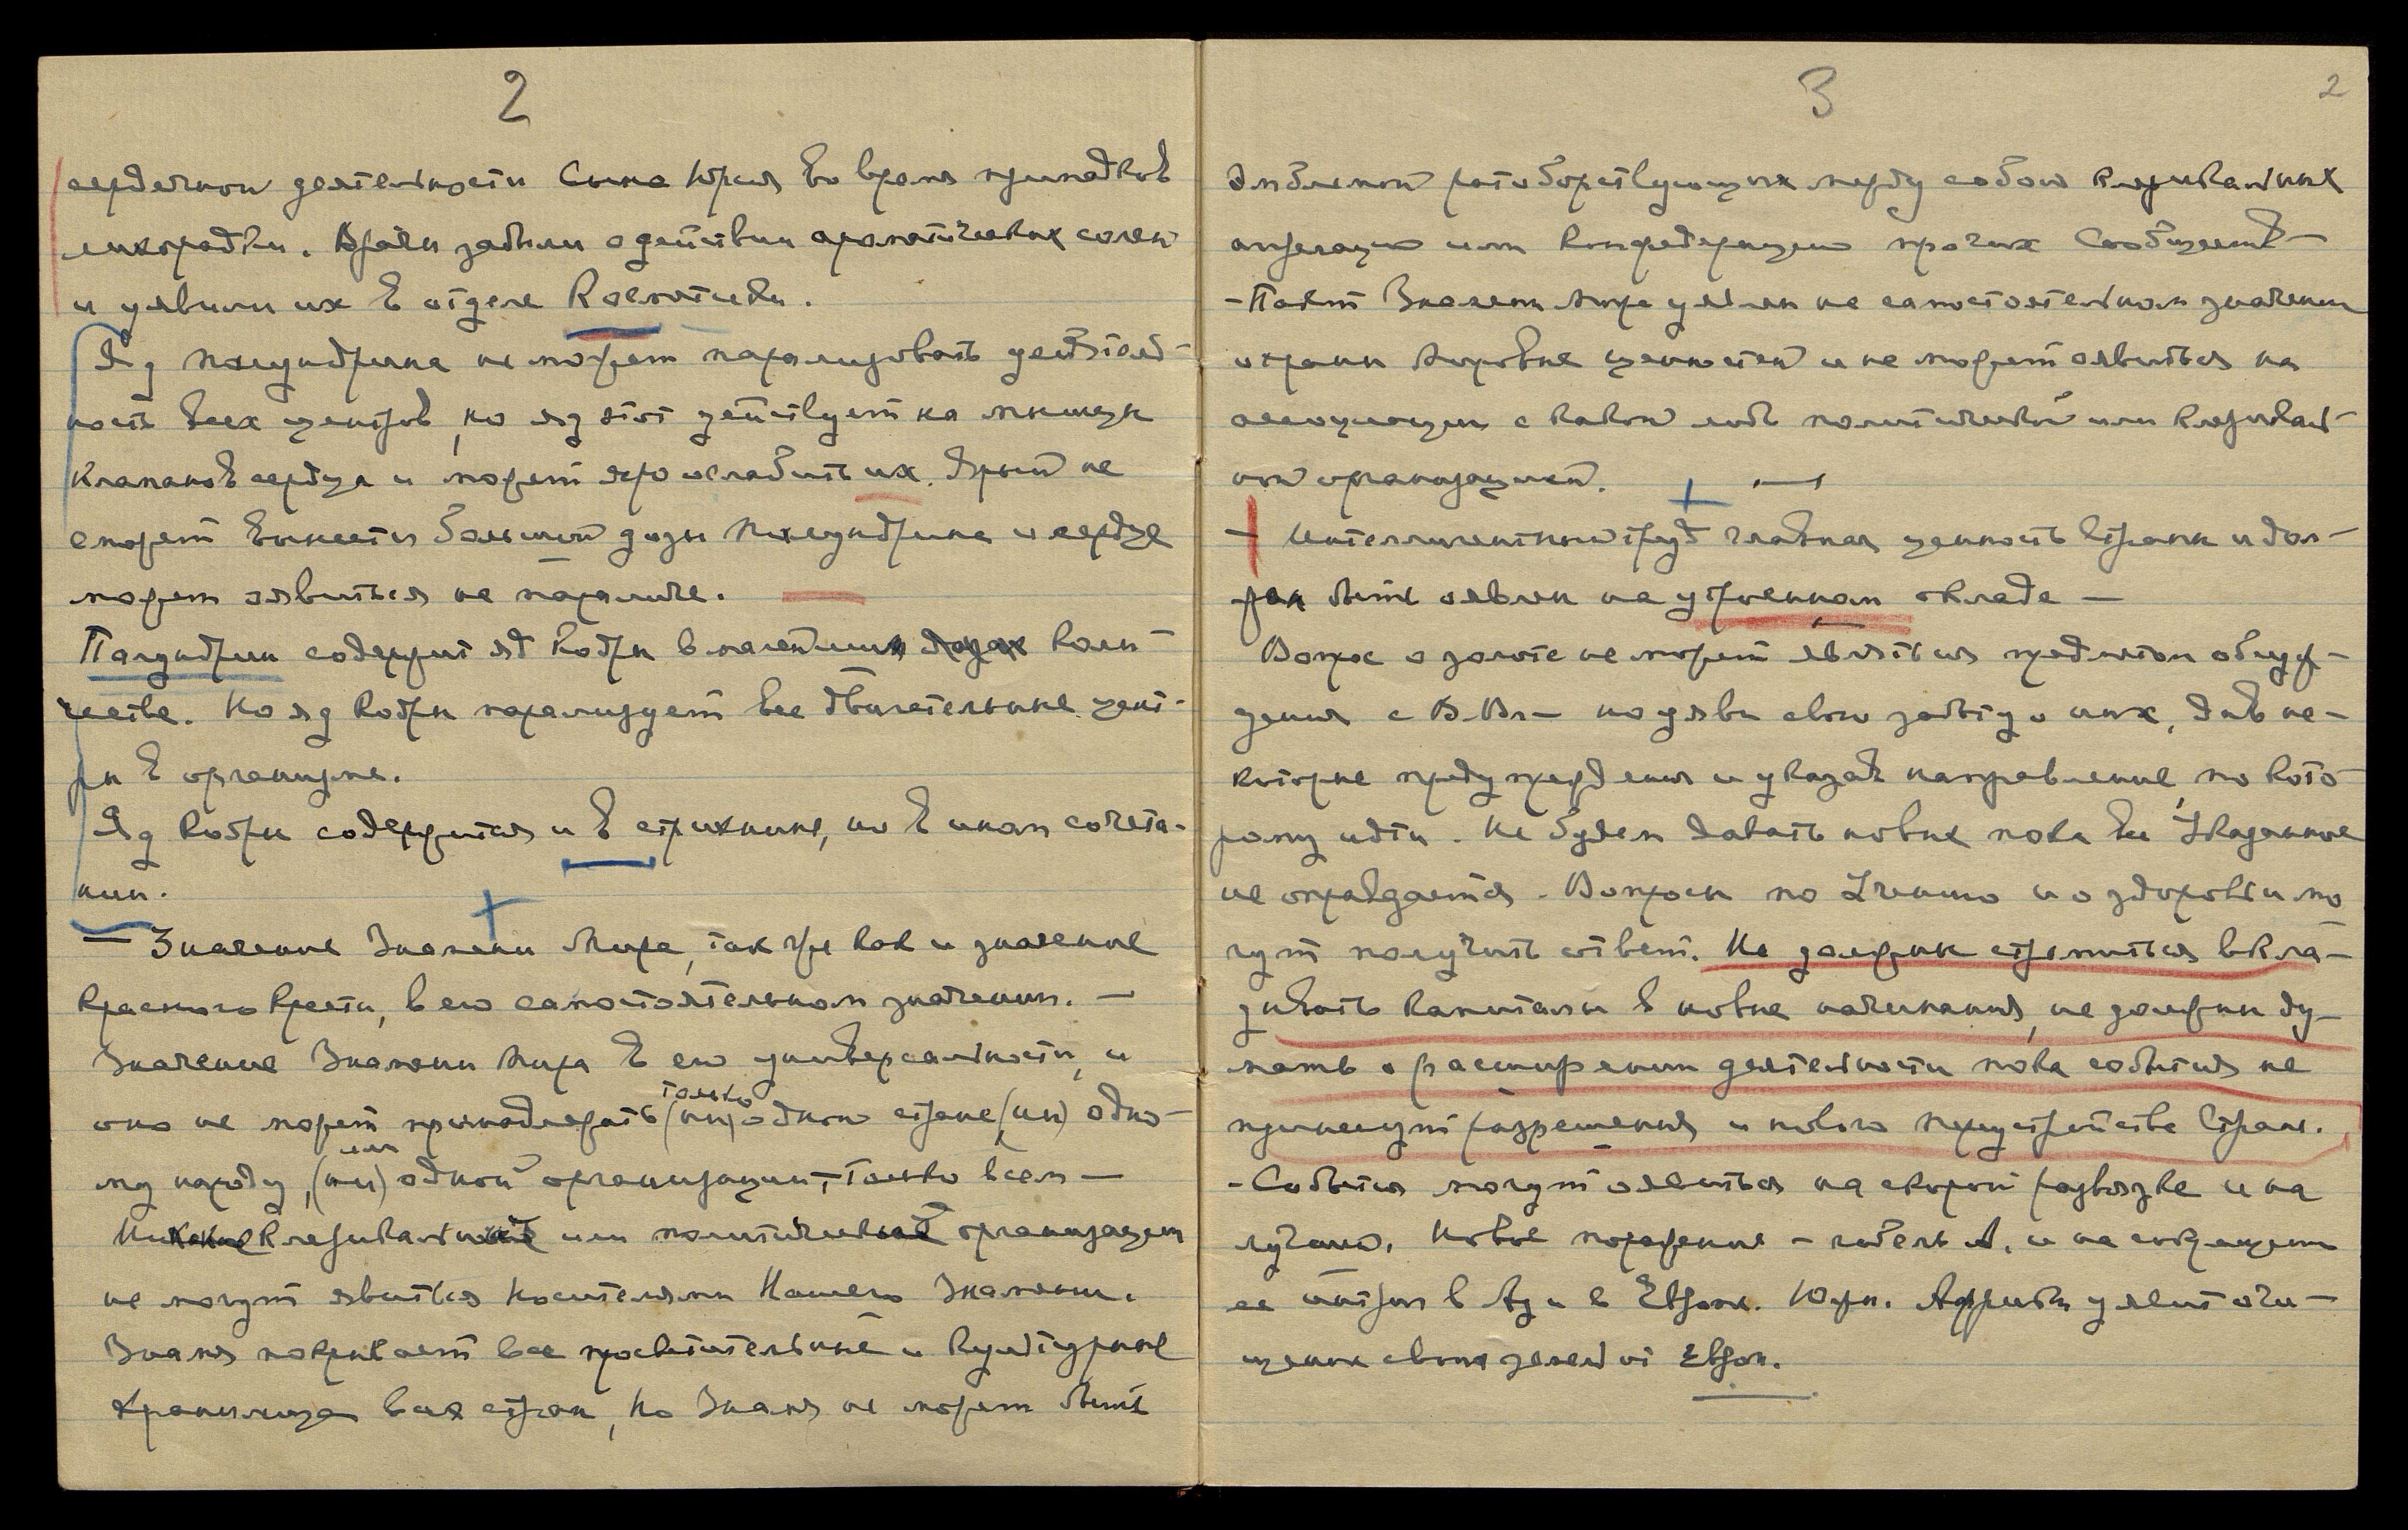 2
сердечной деятельности Сына Юрия во время припадков
лихорадки. Врачи забыли о действии ароматических солей
и уявили их в отделе Косметики.
Яд палундрина не может парализовать деятель-
ность всех центров, но яд этот действует на мышцы
клапанов сердца и может яро ослабить их. Ярый не
сможет вынести большой дозы палундрина и сердце
может оявиться на параличе.
Палундрин содержит яд кобры в малейших дозах коли-
честве. Но яд кобры парализует все двигательные цент-
ры в организме.
Яд кобры содержится и в стрихнине, но в ином сочета-
нии.
— Значение Знамени Мира, так же как и значение
Красного Креста, в его самостоятельном значении. —
Значение Знамени Мира в его универсальности, и
только
оно не может принадлежать (ни) одной стране (ни) одно-
или
му народу, (ни) одной организации, — только всем —
Никакие клерикальные или политические организации
не могут явиться носителями Нашего Знамени.
Знамя покрывает все просветительные и культурные
хранилища всех стран, но Знамя не может быть
3
2
эмблемой ратоборствующих между собою клерикальных
или конфедерацию прочих Сообществ —
— Пакт Знамени Мира уявлен на самостоятельном значении
охраны мировые ценностей и не может оявиться на
ассоциации с какой либо политической или клерикаль-
ной организацией. —
— Интеллигентный труд главная ценность страны и дол-
жен быть оявлен на утроенном окладе —
Вопрос о золоте не может являться предметом обсуж-
дения с В.Вл — но уяви свою заботу о них, дав не-
которые предупреждения и указав направление, по кото-
рому идти. Не будем давать новые пока все Указанное
не оправдается. Вопросы по Учению и о здоровьи мо-
гут получить ответ. Не должны стремиться вкла-
дывать капиталы в новые начинания, не должны ду-
мать о расширении деятельности пока события не
принесут разрешения и нового переустройства Стран.
— События могут оявиться на скорой развязке и на
лучшей. Новое поражение — гибель А. и на сокращении
ее в Аз и в Европе. Южн. Африка уявит отчи-
щение своих земель от Европ.